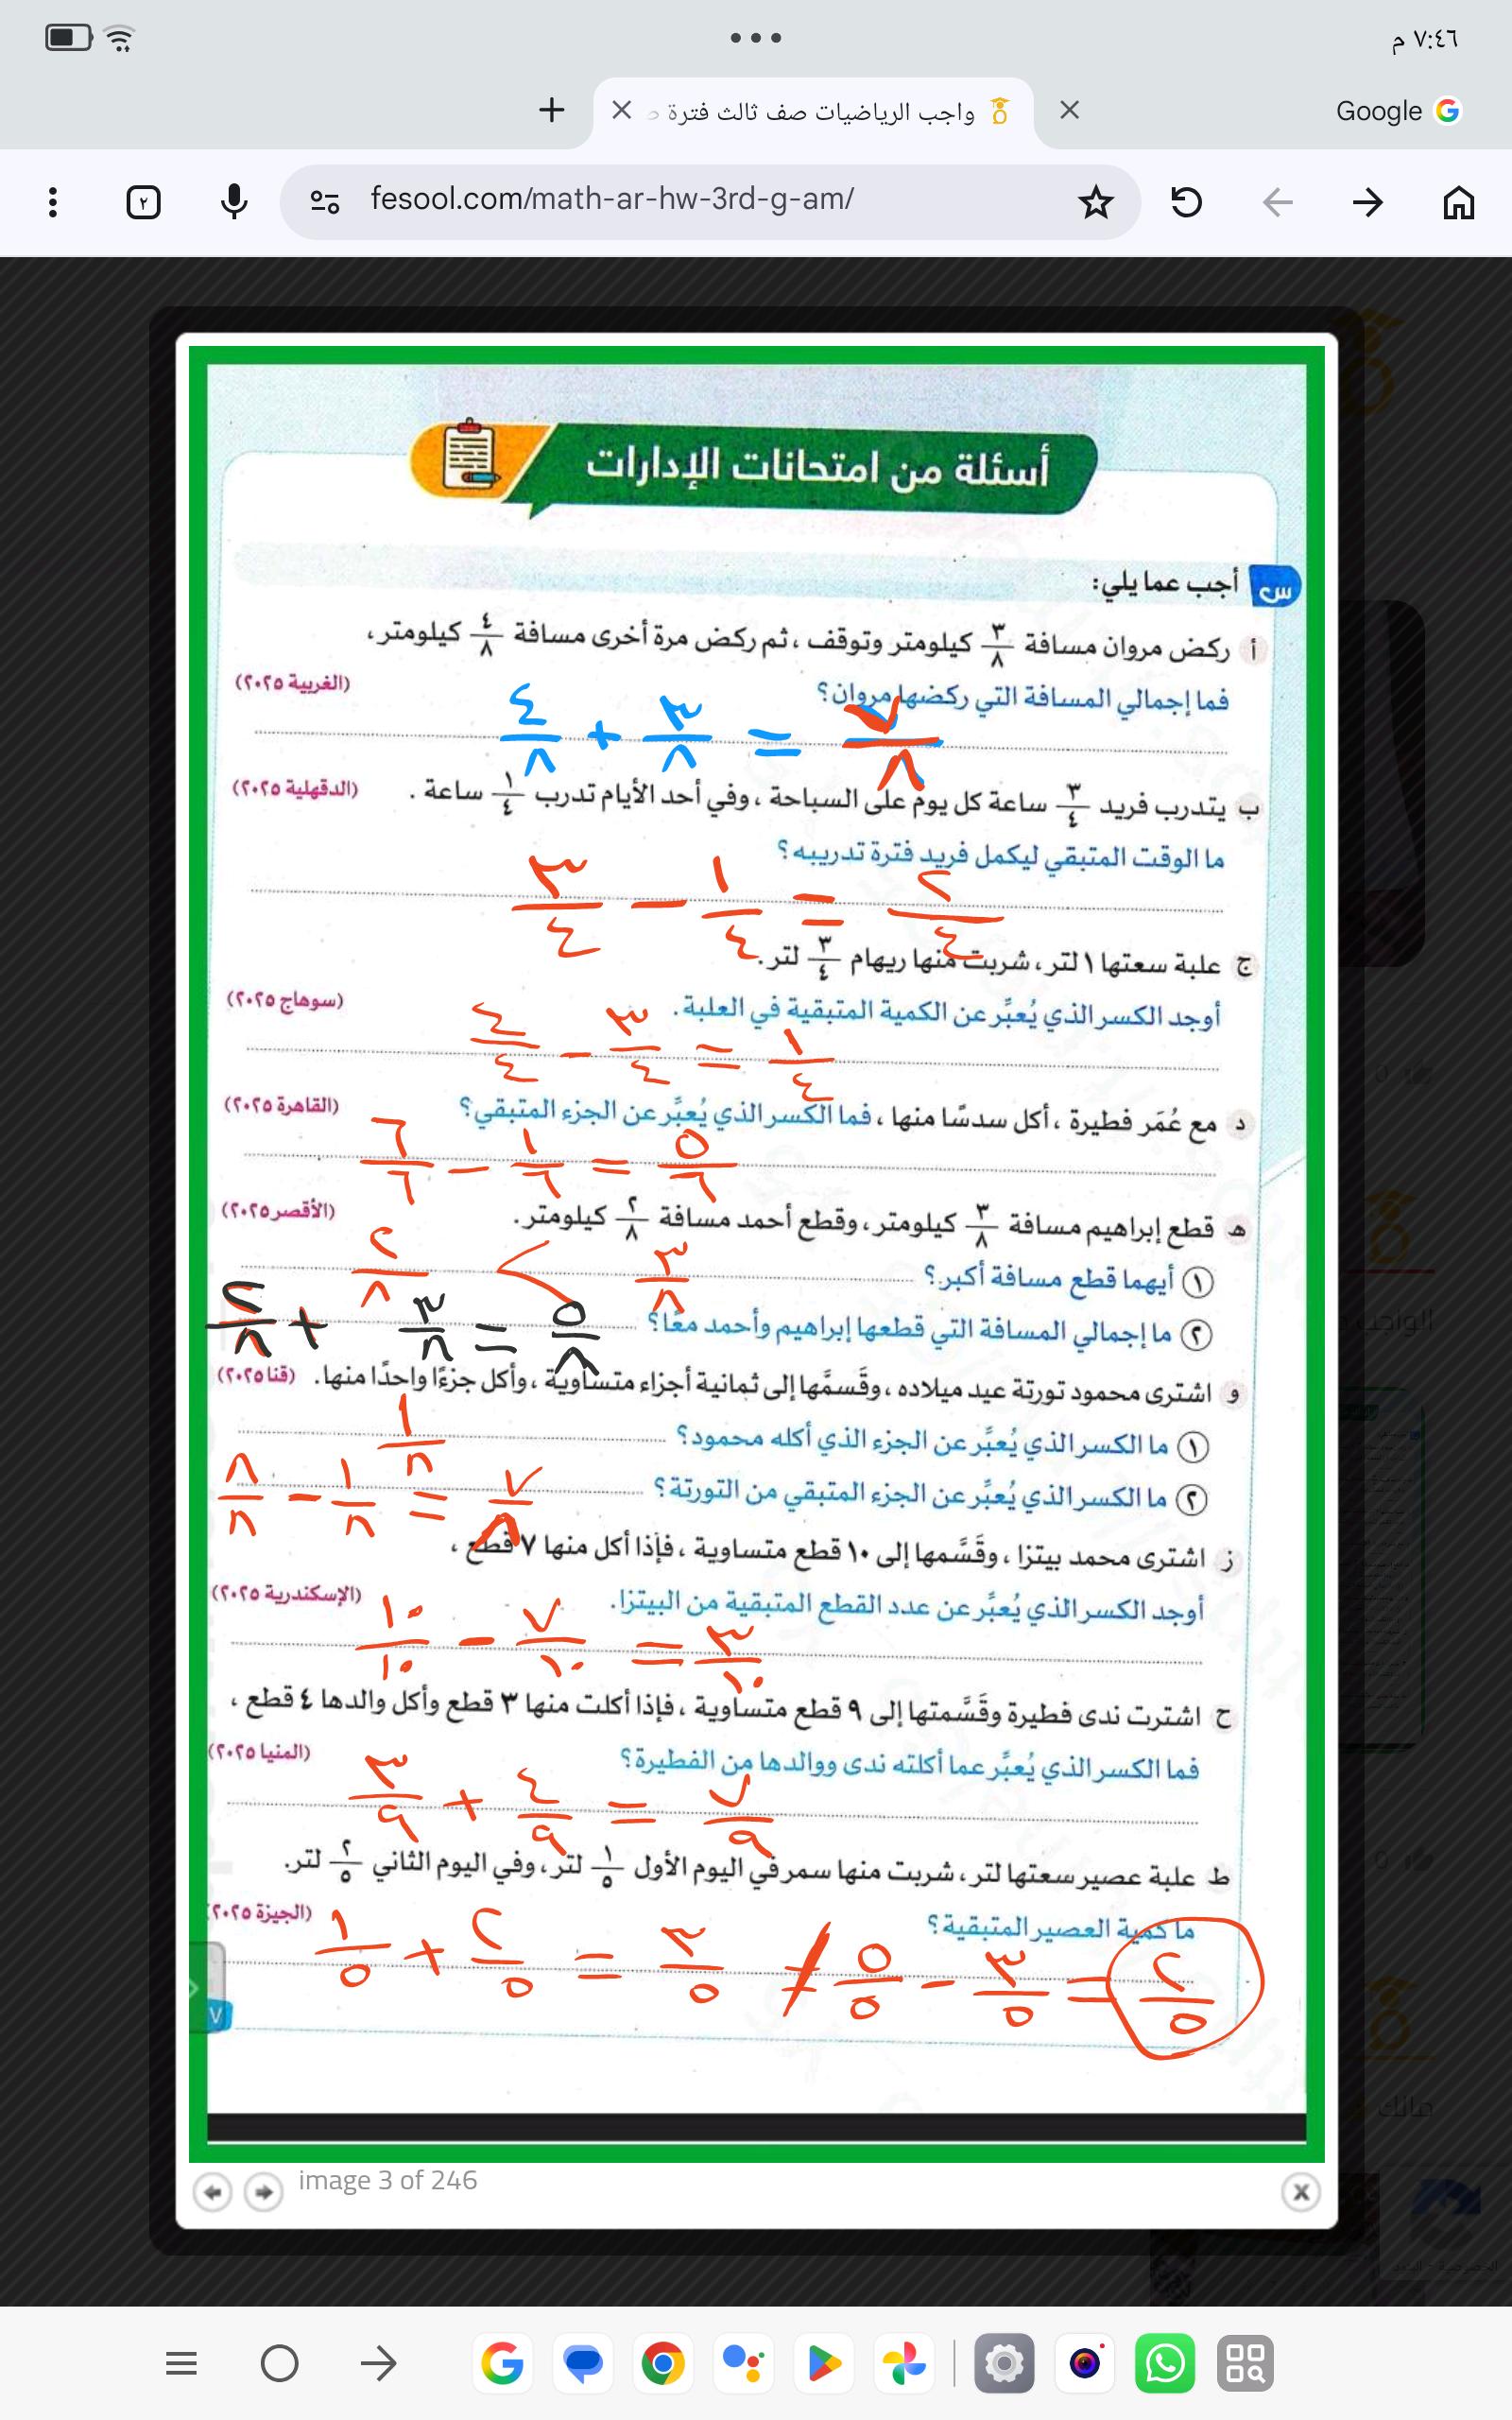 ٧:٤٦ م
Google
واجب الرياضيات صف ثالث فترة
fesool.com/math-ar-hw-3rd-g-am/
٢
أسئلة من امتحانات الإدارات
س أجب عما يلي:
أ ركض مروان مسافة ٣/٨ كيلومتر وتوقف، ثم ركض مرة أخرى مسافة ٤/٨ كيلومتر،
فما إجمالي المسافة التي ركضها مروان؟ (الغربية ٢٠٢٥)
٤/٨ + ٣/٨ = ٧/٨
ب يتدرب فريد ٣/٤ ساعة كل يوم على السباحة، وفي أحد الأيام تدرب ١/٤ ساعة. (الدقهلية ٢٠٢٥)
ما الوقت المتبقي ليكمل فريد فترة تدريبه؟
٣/٤ - ١/٤ = ٢/٤
ج علبة سعتها ١ لتر، شربت منها ريهام ٣/٤ لتر.
أوجد الكسر الذي يُعبِّر عن الكمية المتبقية في العلبة. (سوهاج ٢٠٢٥)
٤/٤ - ٣/٤ = ١/٤
د مع عُمَر فطيرة، أكل سدسًا منها، فما الكسر الذي يُعبِّر عن الجزء المتبقي؟ (القاهرة ٢٠٢٥)
٦/٦ - ١/٦ = ٥/٦
هـ قطع إبراهيم مسافة ٣/٨ كيلومتر، وقطع أحمد مسافة ٢/٨ كيلومتر. (الأقصر ٢٠٢٥)
١ أيهما قطع مسافة أكبر؟
٢/٨ < ٣/٨
٢ ما إجمالي المسافة التي قطعها إبراهيم وأحمد معًا؟
٢/٨ + ٣/٨ = ٥/٨
و اشترى محمود تورتة عيد ميلاده، وقَسمَّها إلى ثمانية أجزاء متساوية، وأكل جزءًا واحدًا منها. (قنا ٢٠٢٥)
١ ما الكسر الذي يُعبِّر عن الجزء الذي أكله محمود؟
١/٨
٢ ما الكسر الذي يُعبِّر عن الجزء المتبقي من التورتة؟
٨/٨ - ١/٨ = ٧/٨
ز اشترى محمد بيتزا، وقَسَّمها إلى ١٠ قطع متساوية، فإذا أكل منها ٧ قطع،
أوجد الكسر الذي يُعبِّر عن عدد القطع المتبقية من البيتزا. (الإسكندرية ٢٠٢٥)
١٠/١٠ - ٧/١٠ = ٣/١٠
ح اشترت ندى فطيرة وقَسَّمتها إلى ٩ قطع متساوية، فإذا أكلت منها ٣ قطع وأكل والدها ٤ قطع،
فما الكسر الذي يُعبِّر عما أكلته ندى ووالدها من الفطيرة؟ (المنيا ٢٠٢٥)
٣/٩ + ٤/٩ = ٧/٩
ط علبة عصير سعتها لتر، شربت منها سمر في اليوم الأول ١/٥ لتر، وفي اليوم الثاني ٢/٥ لتر.
ما كمية العصير المتبقية؟ (الجيزة ٢٠٢٥)
١/٥ + ٢/٥ = ٣/٥ / ٥/٥ - ٣/٥ = ٢/٥
٧
image 3 of 246